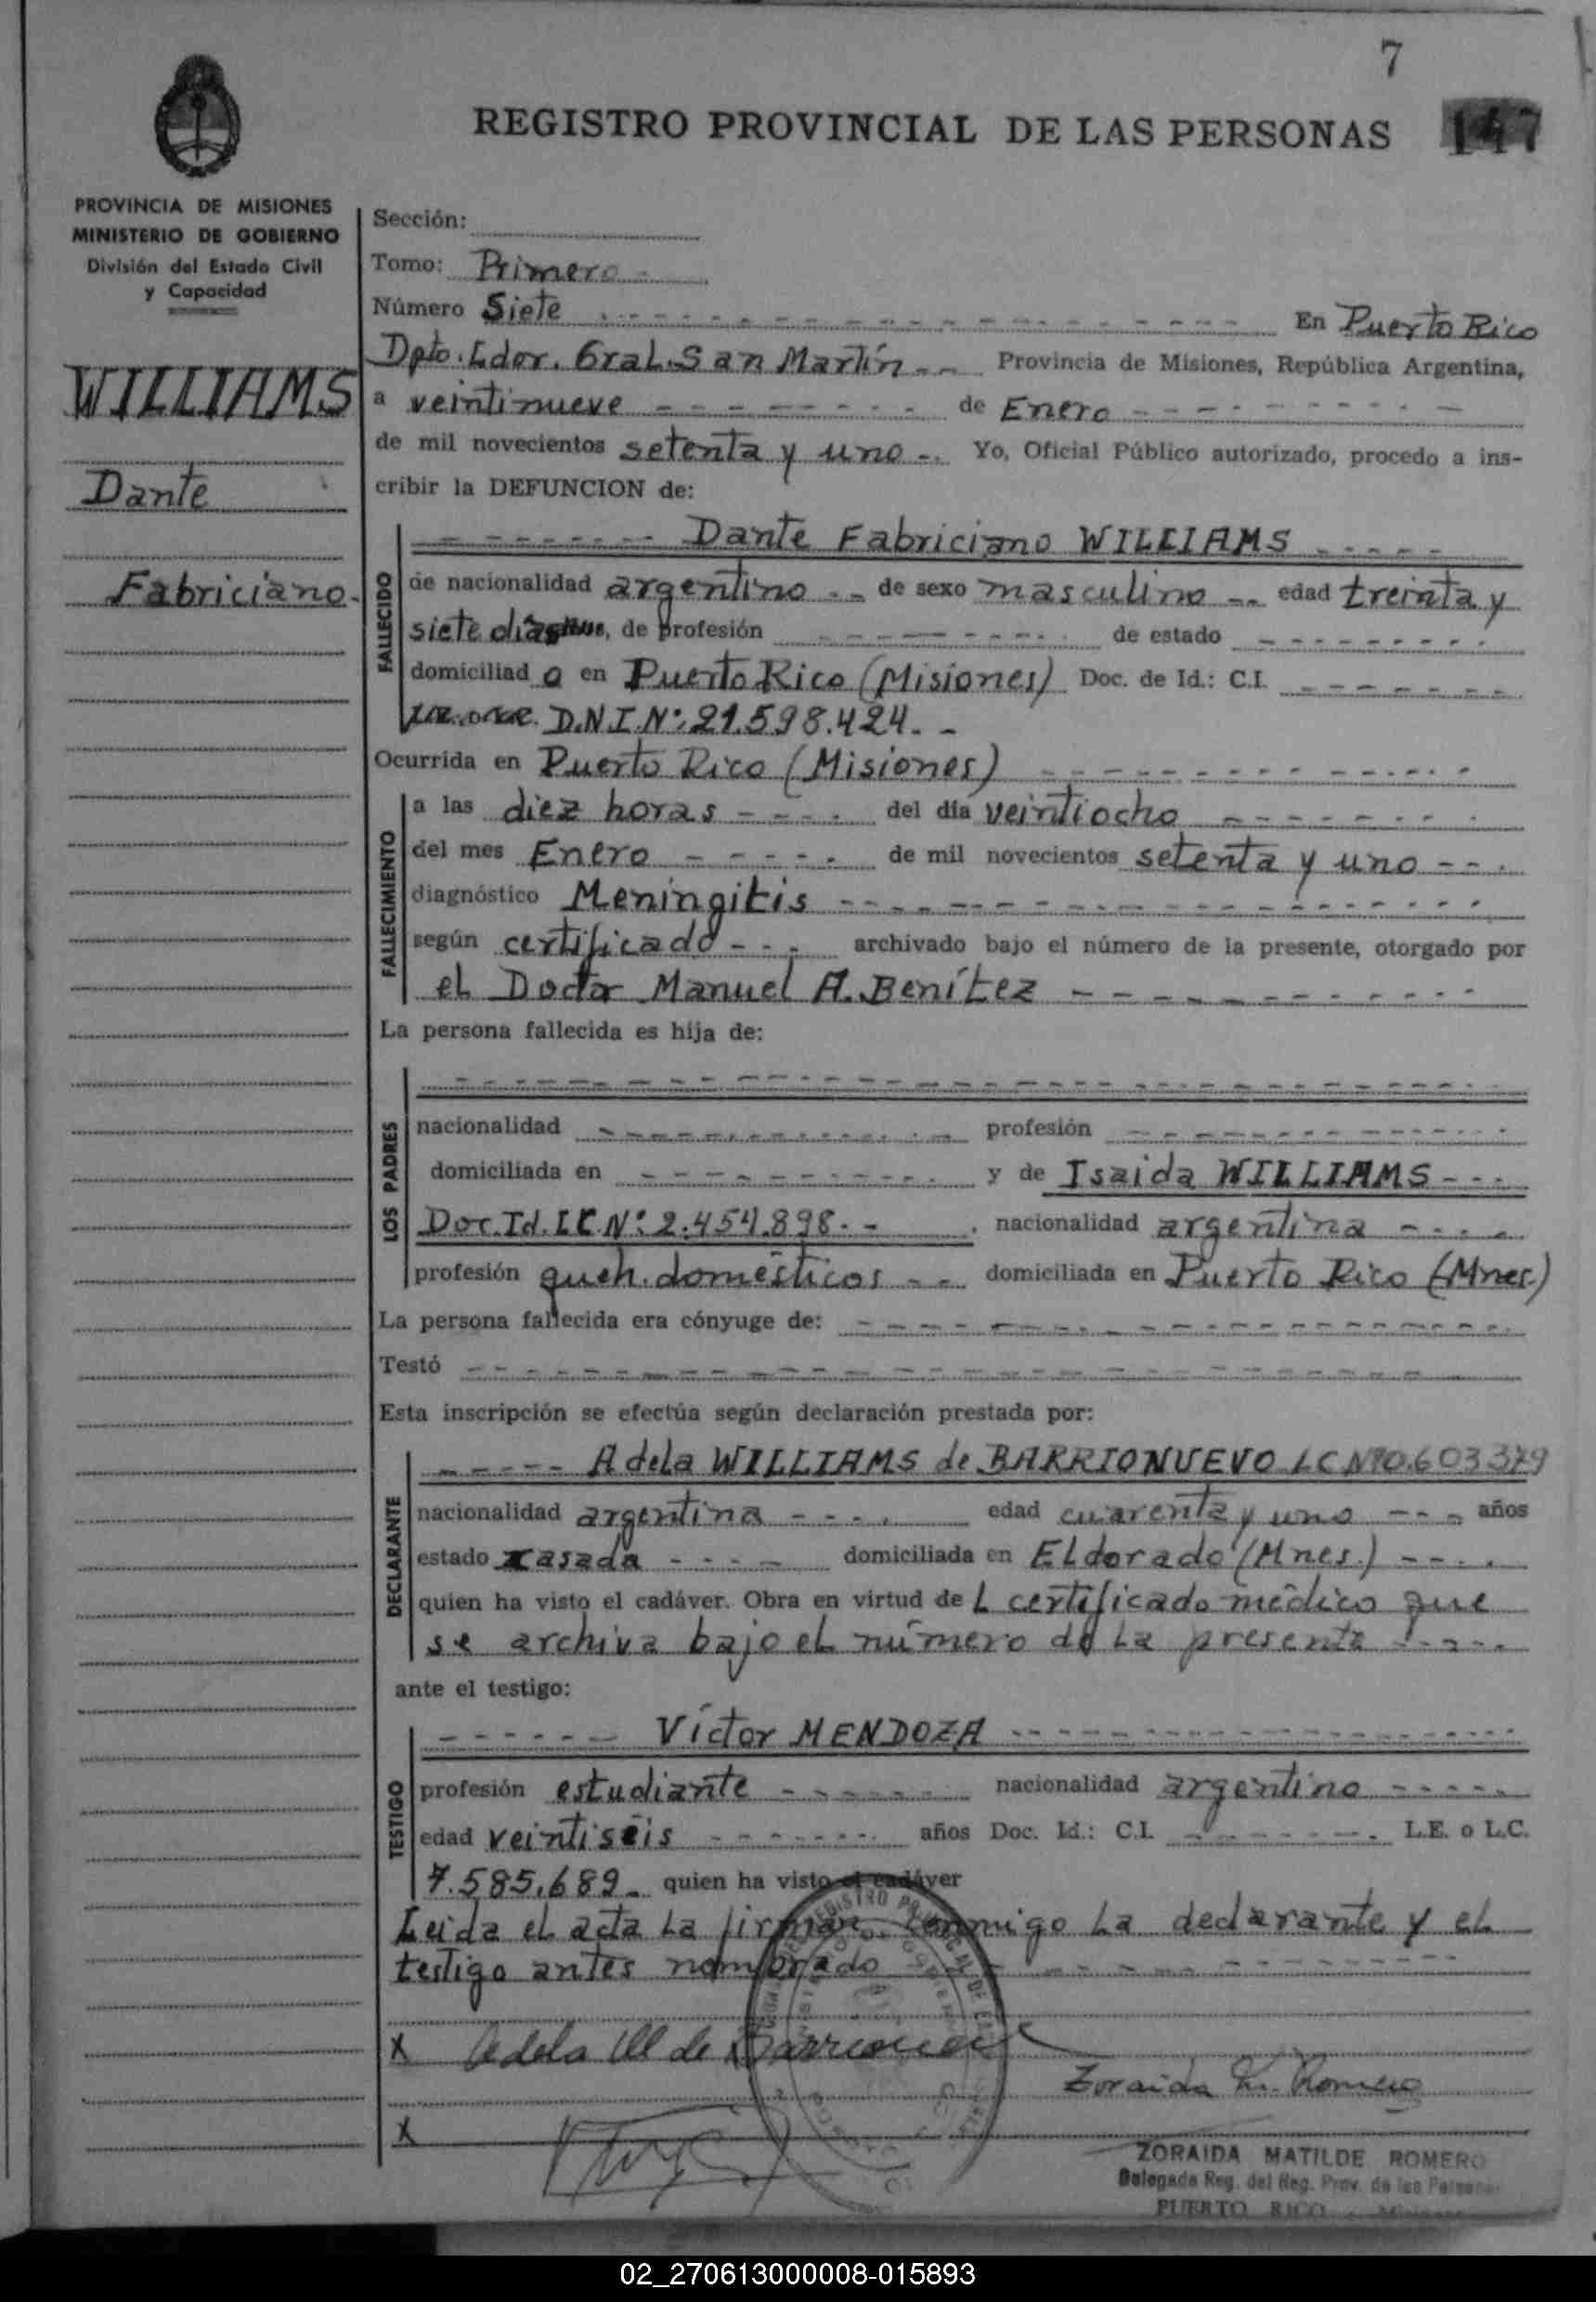 7
REGISTRO PROVINCIAL DE LAS PERSONAS 147
PROVINCIA DE MISIONES
MINISTERIO DE GOBIERNO
División del Estado Civil
y Capacidad
WILLIAMS
Dante
Fabriciano.
Sección:
Tomo: Primero
Número Siete En Puerto Rico
Dpto. Ldor. Gral. San Martín Provincia de Misiones, República Argentina,
a veintinueve de Enero
de mil novecientos setenta y uno Yo, Oficial Público autorizado, procedo a ins-
cribir la DEFUNCION de:
FALLECIDO
Dante Fabriciano WILLIAMS
de nacionalidad argentino de sexo masculino edad treinta y
siete días, de profesión de estado
domiciliad o en Puerto Rico (Misiones) Doc. de Id.: C.I.
D.N.I. N°: 21.598.424.
Ocurrida en Puerto Rico (Misiones)
FALLECIMIENTO
a las diez horas del día veintiocho
del mes Enero de mil novecientos setenta y uno
diagnóstico Meningitis
según certificado archivado bajo el número de la presente, otorgado por
el Doctor Manuel A. Benítez
La persona fallecida es hija de:
LOS PADRES
nacionalidad profesión
domiciliada en y de Isaida WILLIAMS
Doc. Id. L.C. N°: 2.454.898. nacionalidad argentina
profesión queh. domésticos domiciliada en Puerto Rico (Mnes.)
La persona fallecida era cónyuge de:
Testó
Esta inscripción se efectúa según declaración prestada por:
DECLARANTE
Adela WILLIAMS de BARRIONUEVO LC Nº0.603379
nacionalidad argentina edad cuarenta y uno años
estado casada domiciliada en Eldorado (Mnes.)
quien ha visto el cadáver. Obra en virtud de l certificado médico que
se archiva bajo el número de la presente
ante el testigo:
TESTIGO
Víctor MENDOZA
profesión estudiante nacionalidad argentino
edad veintiséis años Doc. Id.: C.I. L.E. o L.C.
7.585.689 quien ha visto el cadáver
Leída el acta la firman conmigo la declarante y el
testigo antes nombrado
X Adela W de Barrionuevo
Zoraida M. Romero
X
ZORAIDA MATILDE ROMERO
Delegada Reg. del Reg. Prov. de las Personas
PUERTO RICO - Misiones
02_270613000008-015893